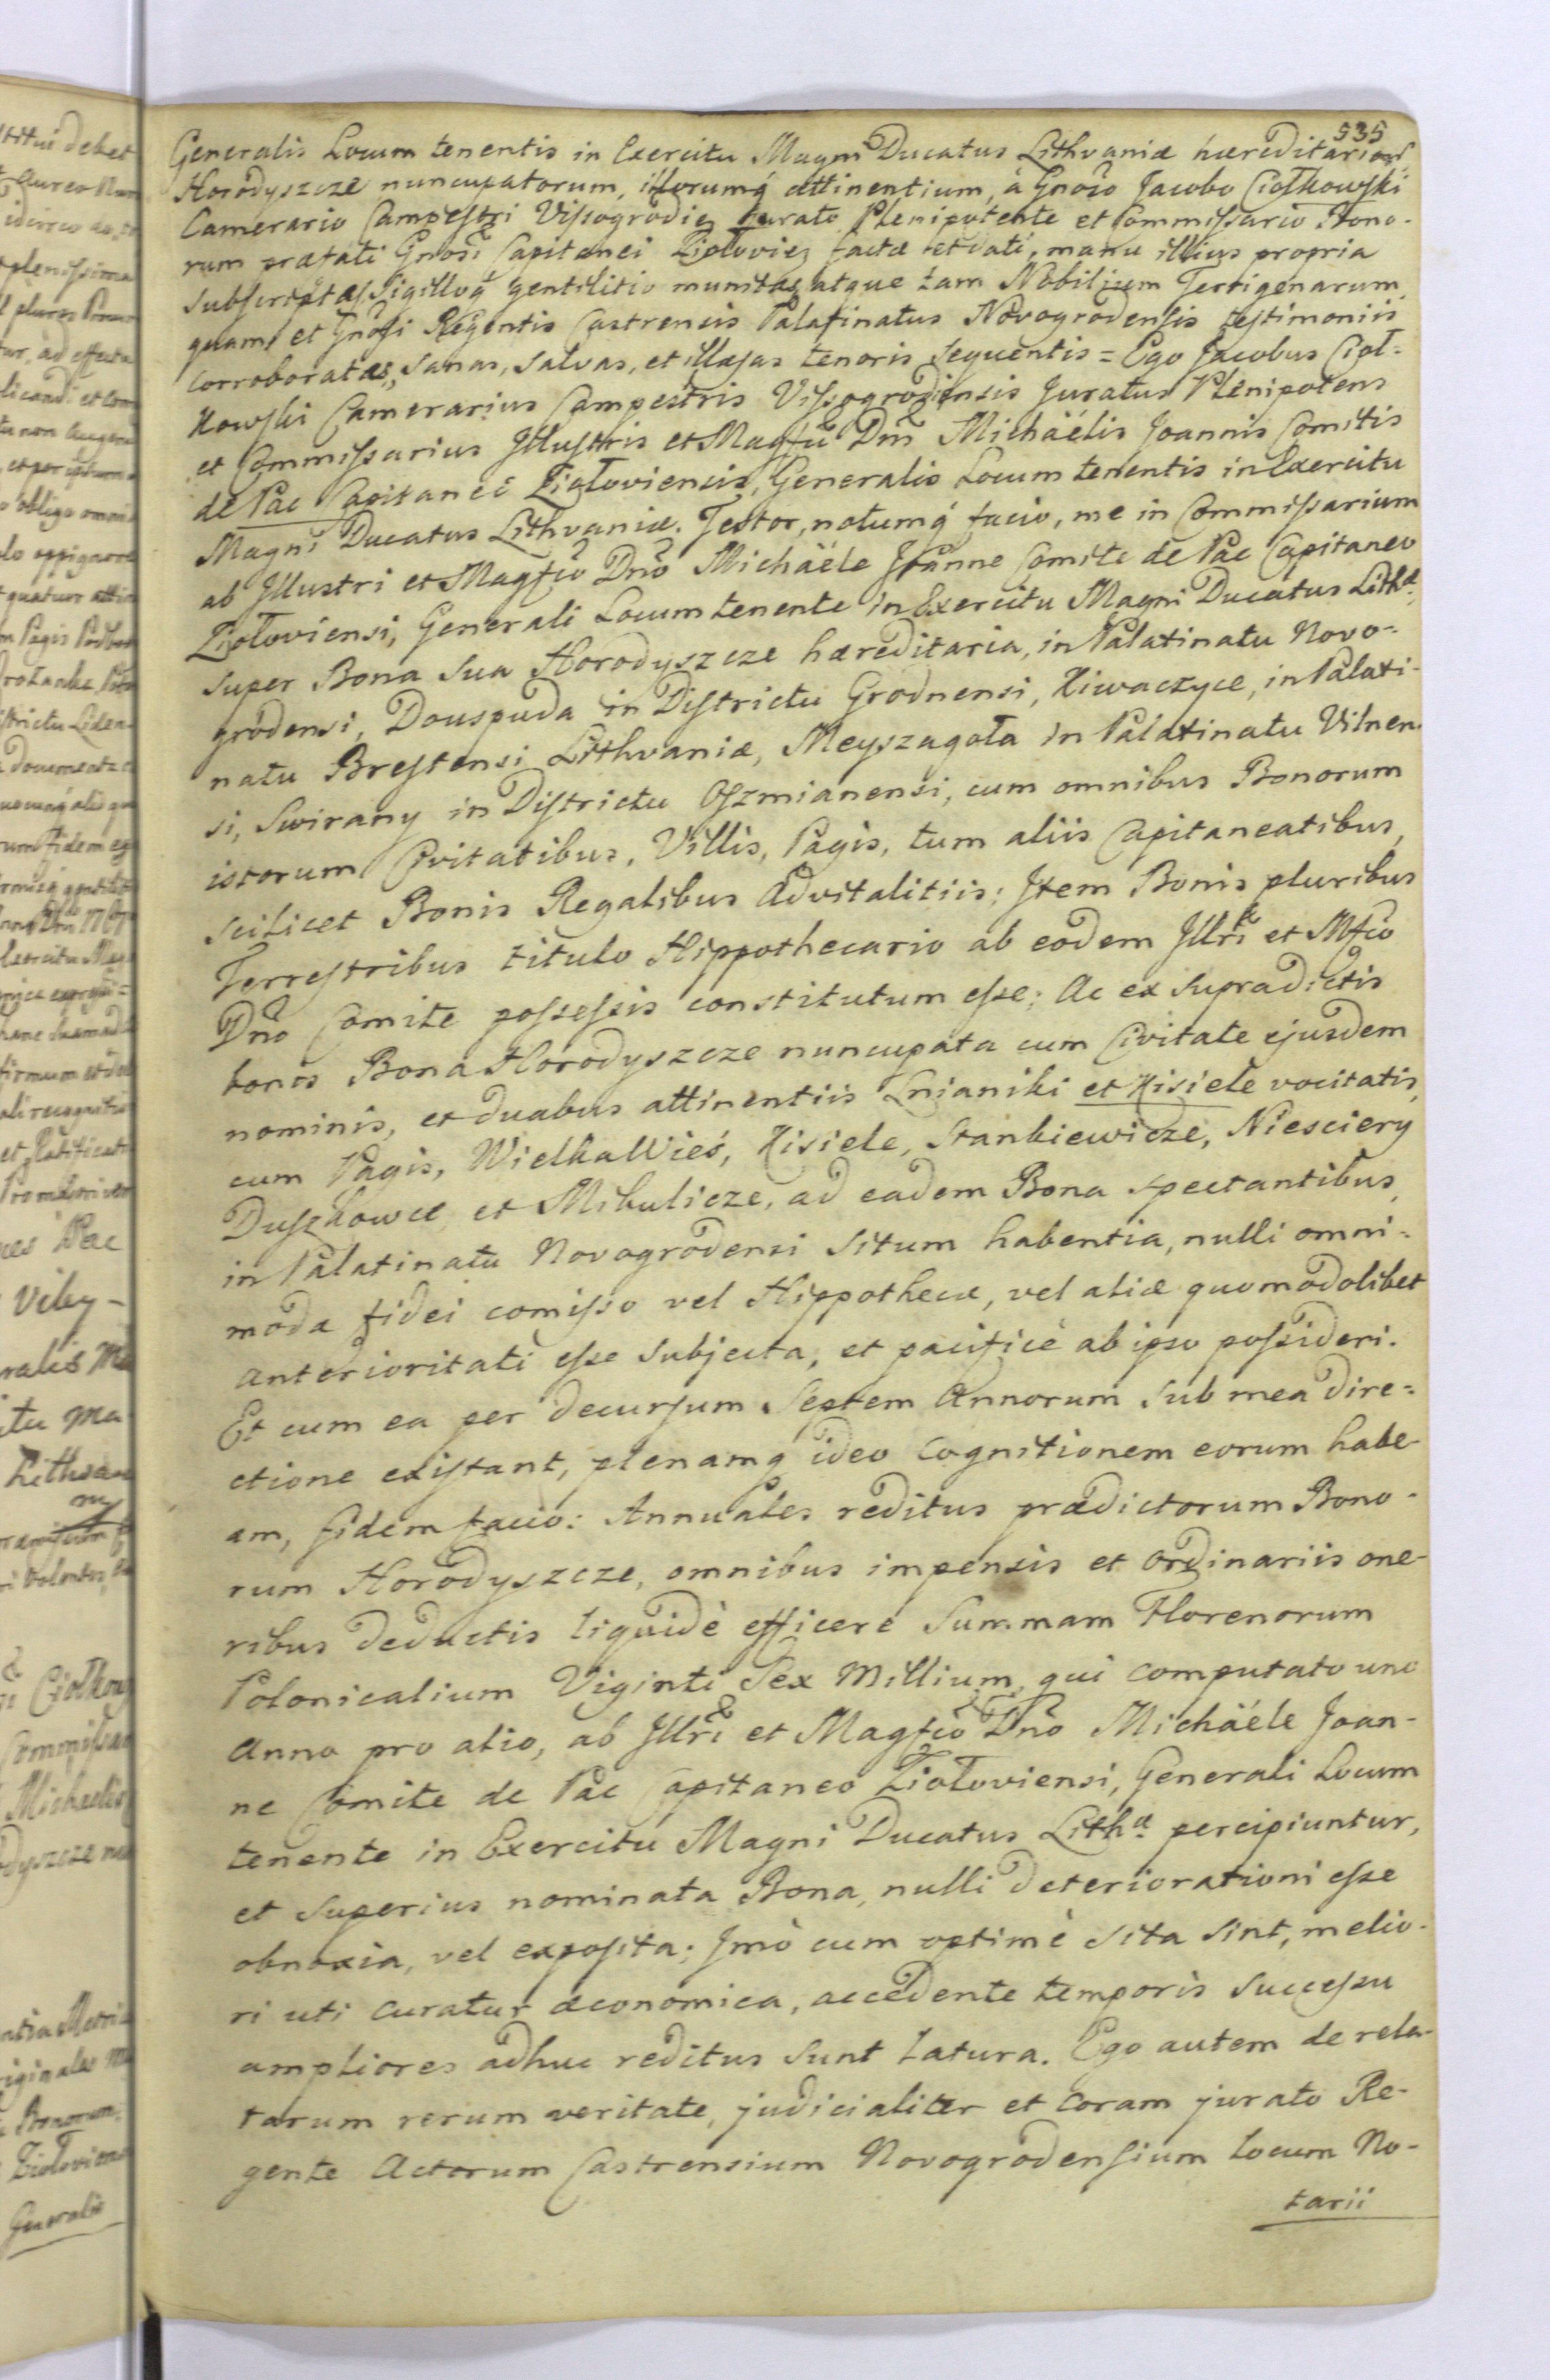 535
Generalis Locum tenentis in Exercitu Magni Ducatus Lithvaniæ hæreditariorum
Horodyszcze nuncupatorum, illorumq́ attinentium, à Gnoso Jacobo Ciołkowski
Camerario Campestri Vissogrodien jurato Plenipotente et Commissario Bono-
rum præfati Gnosi Capitanei Ziołovien factæ et dati, manu illius propria
subscriptas, Sigilloq́ gentilitio munitas, atque tam Nobilium Terrigenarum,
quam et Gnosi Regentis Castrensis Palatinatus Novogrodensis testimoniis
corroboratas, sanas, salvas, et illæsas tenoris sequentis = Ego Jacobus Cioł=
kowski Camerarius Campestris Vissogrodiensis Juratus Plenipotens
et Commissarius Illustris et Magfci Dni Michäélis Joannis Comitis
de Pac Capitanei Ziołoviensis, Generalis Locum tenentis in Exercitu
Magni Ducatus Lithvaniæ. Testor, notumq́ facio, me in Commissarium
ab Illustri et Magfco Dno Michäéle Joanne Comite de Pac Capitaneo
Ziołoviensi, Generali Locumtenente in Exercitu Magni Ducatus Lithæ
super Bona sua Horodyszcze hæreditaria, in Palatinatu Novo-
grodensi, Douspuda in Districtu Grodnensi, Kiwaczyce, in Palati-
natu Brestensi Lithvaniæ, Meyszagoła in Palatinatu Vilnen-
si, Swirany in Districtu Oszmianensi, cum omnibus Bonorum
istorum Civitatibus, Villis, Pagis, tum aliis Capitaneatibus,
scilicet Bonis Regalibus Advitalitiis; Item Bonis pluribus
Terrestribus titulo Hippothecario ab eodem Illri et Mfco
Dno Comite possessis constitutum esse; Ac ex supradictis
bonis Bona Horodyszcze nuncupata cum Civitate ejusdem
nominis, et duabus attinentiis Lnianiki et Kisiele vocitatis,
cum Pagis, WielkaWieś, Kisiele, Stankiewicze, Niesciery
Duszkowce et Mikulicze, ad eadem Bona spectantibus,
in Palatinatu Novogrodensi situm habentia, nulli omni=
modæ fidei comisso vel Hippothecæ, vel aliæ quomodolibet
anterioritati esse subjecta, et pacificè ab ipso possideri.
Et cum ea per decursum Septem Annorum sub mea dire=
ctione existant, plenamq́ ideo cognitionem eorum habe-
am, fidem facio: Annuales reditus prædictorum Bono-
rum Horodyszcze, omnibus impensis et ordinariis one-
ribus deductis liquidè efficere Summam Florenorum
Polonicalium Viginti Sex Millium, qui computato uno
Anno pro alio, ab Illri et Magfco Dno Michäéle Joan-
ne Comite de Pac Capitaneo Ziołoviensi, Generali Locum
tenente in Exercitu Magni Ducatus Lithæ percipiuntur,
et superius nominata Bona, nulli deteriorationi esse
obnoxia, vel exposita; Imò cum optimè sita sint, melio-
ri uti curatur œconomica, accedente temporis successu
ampliores adhuc reditus sunt latura. Ego autem de rela-
tarum rerum veritate, judicialiter et coram jurato Re-
gente Actorum Castrensium Novogrodensium Locum No-
tarii